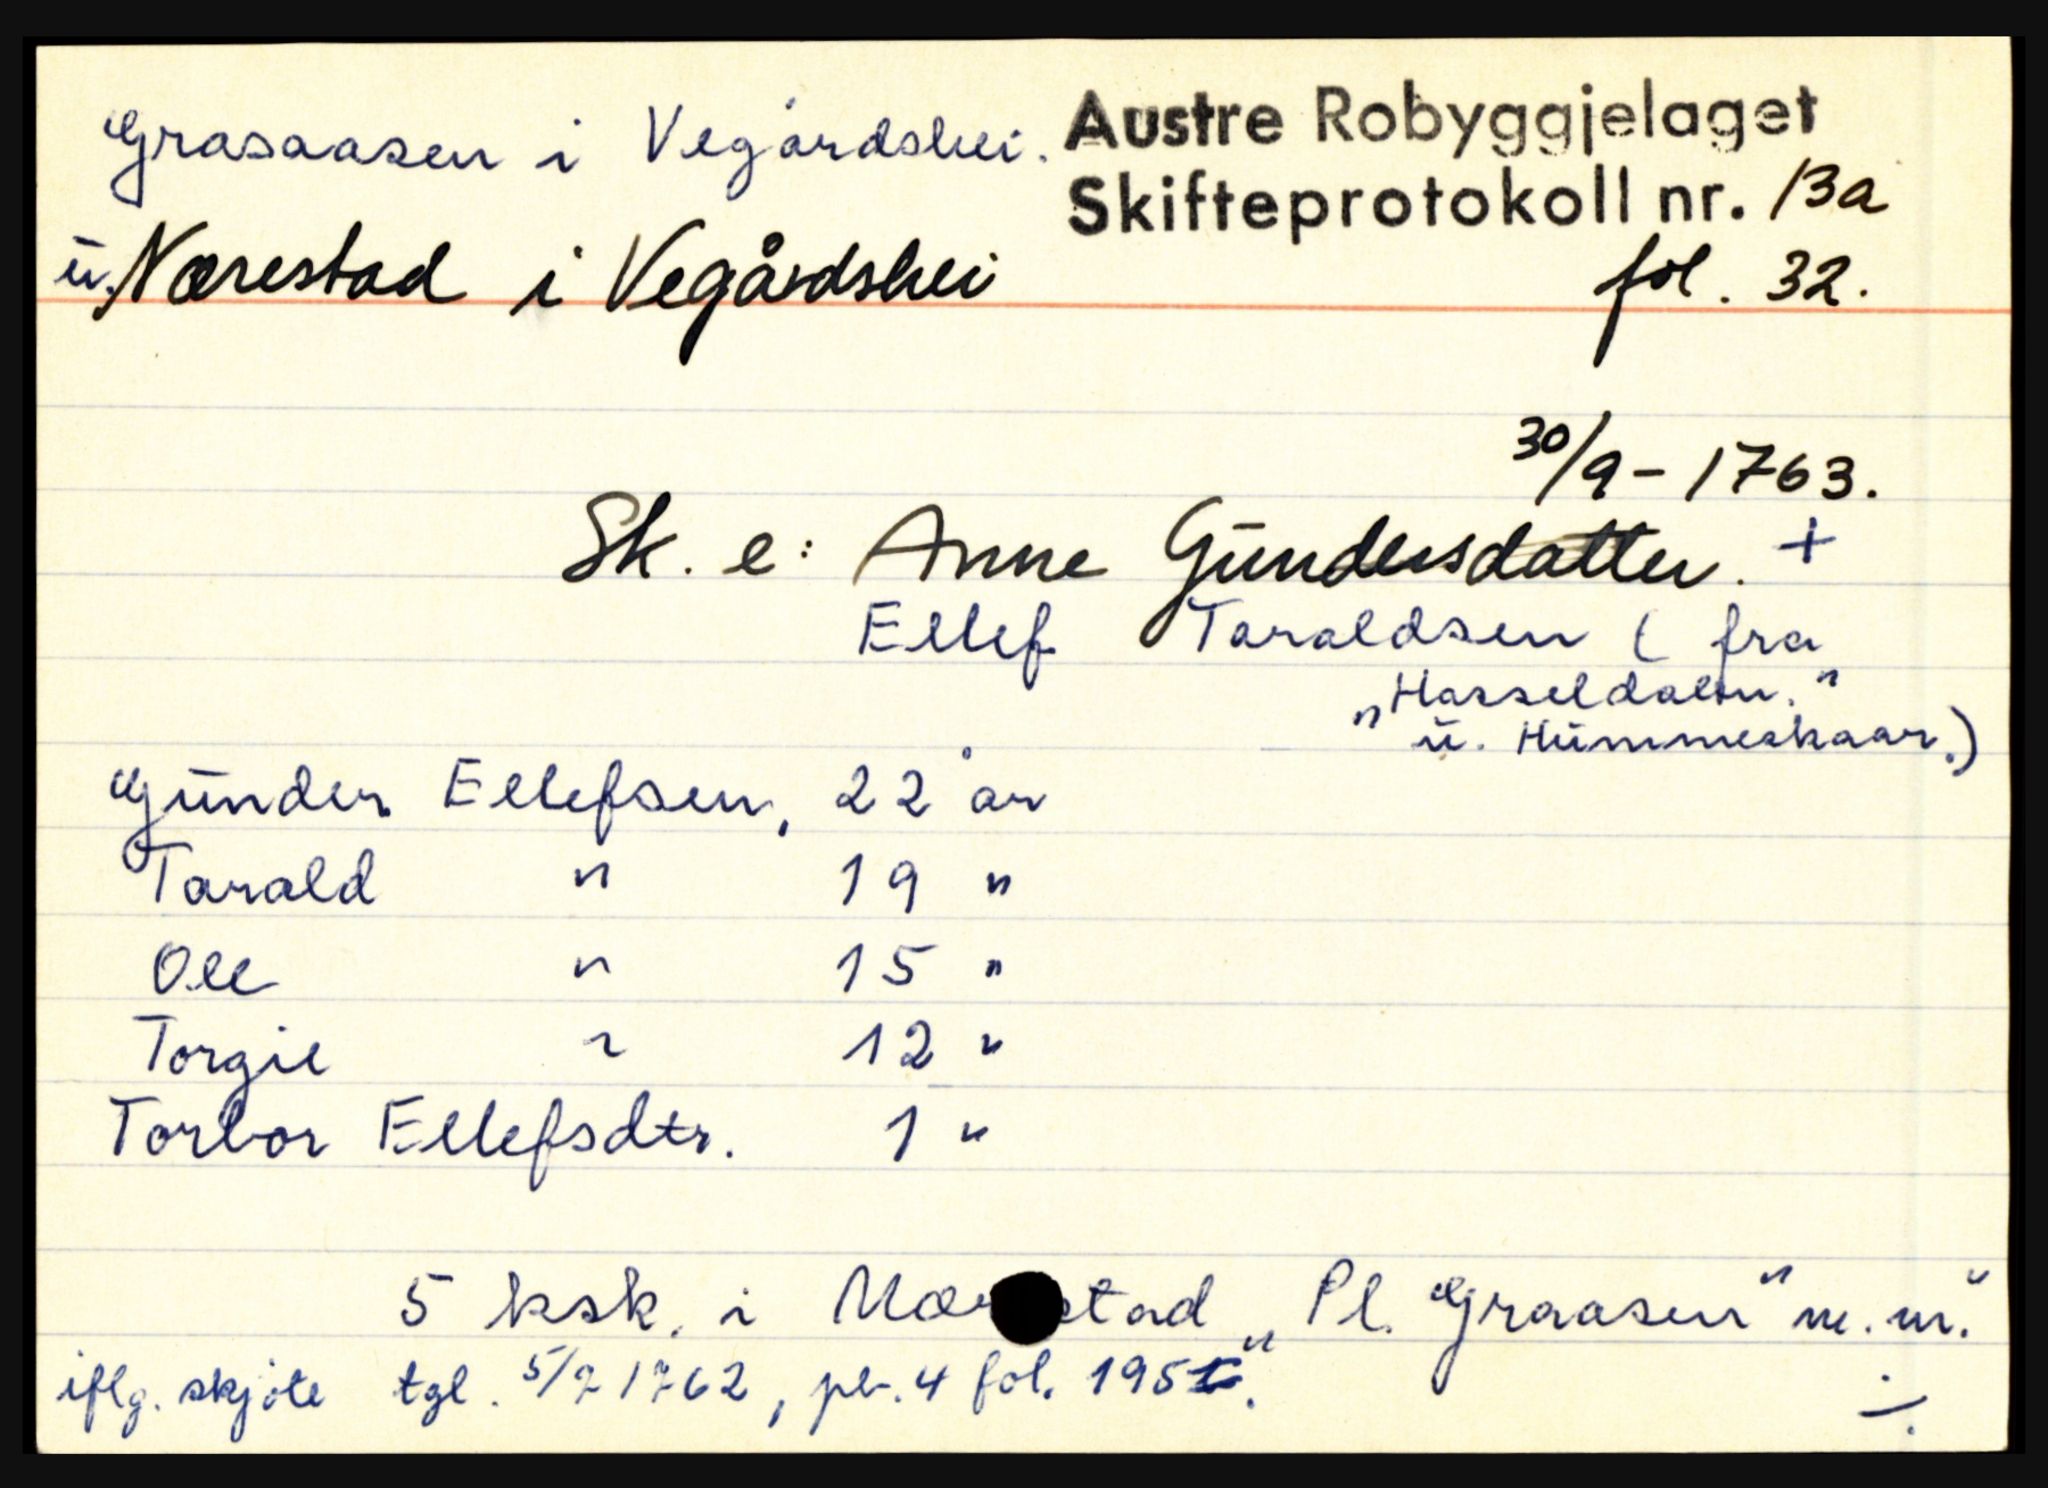 Grasaasen i Vegårdshei.
Austre Robyggjelaget
Skifteprotokoll nr. 13a
u. Nærestad i Vegårdshei
fol. 32.
30/9 - 1763.
Sk. e: Anne Gundersdatter. +
Ellef Taraldsen ( fra
"Hasseldalen."
u. Hummeskaar.)
Gunder Ellefsen, 22 år
Tarald " 19 "
Ole " 15 "
Torgil " 12 "
Torbor Ellefsdtr. 1 "
5 ksk. i Nær stad "Pl. Graasen" m.m."
iflg. skjøte tgl. 5/7 1762, pb. 4 fol. 195